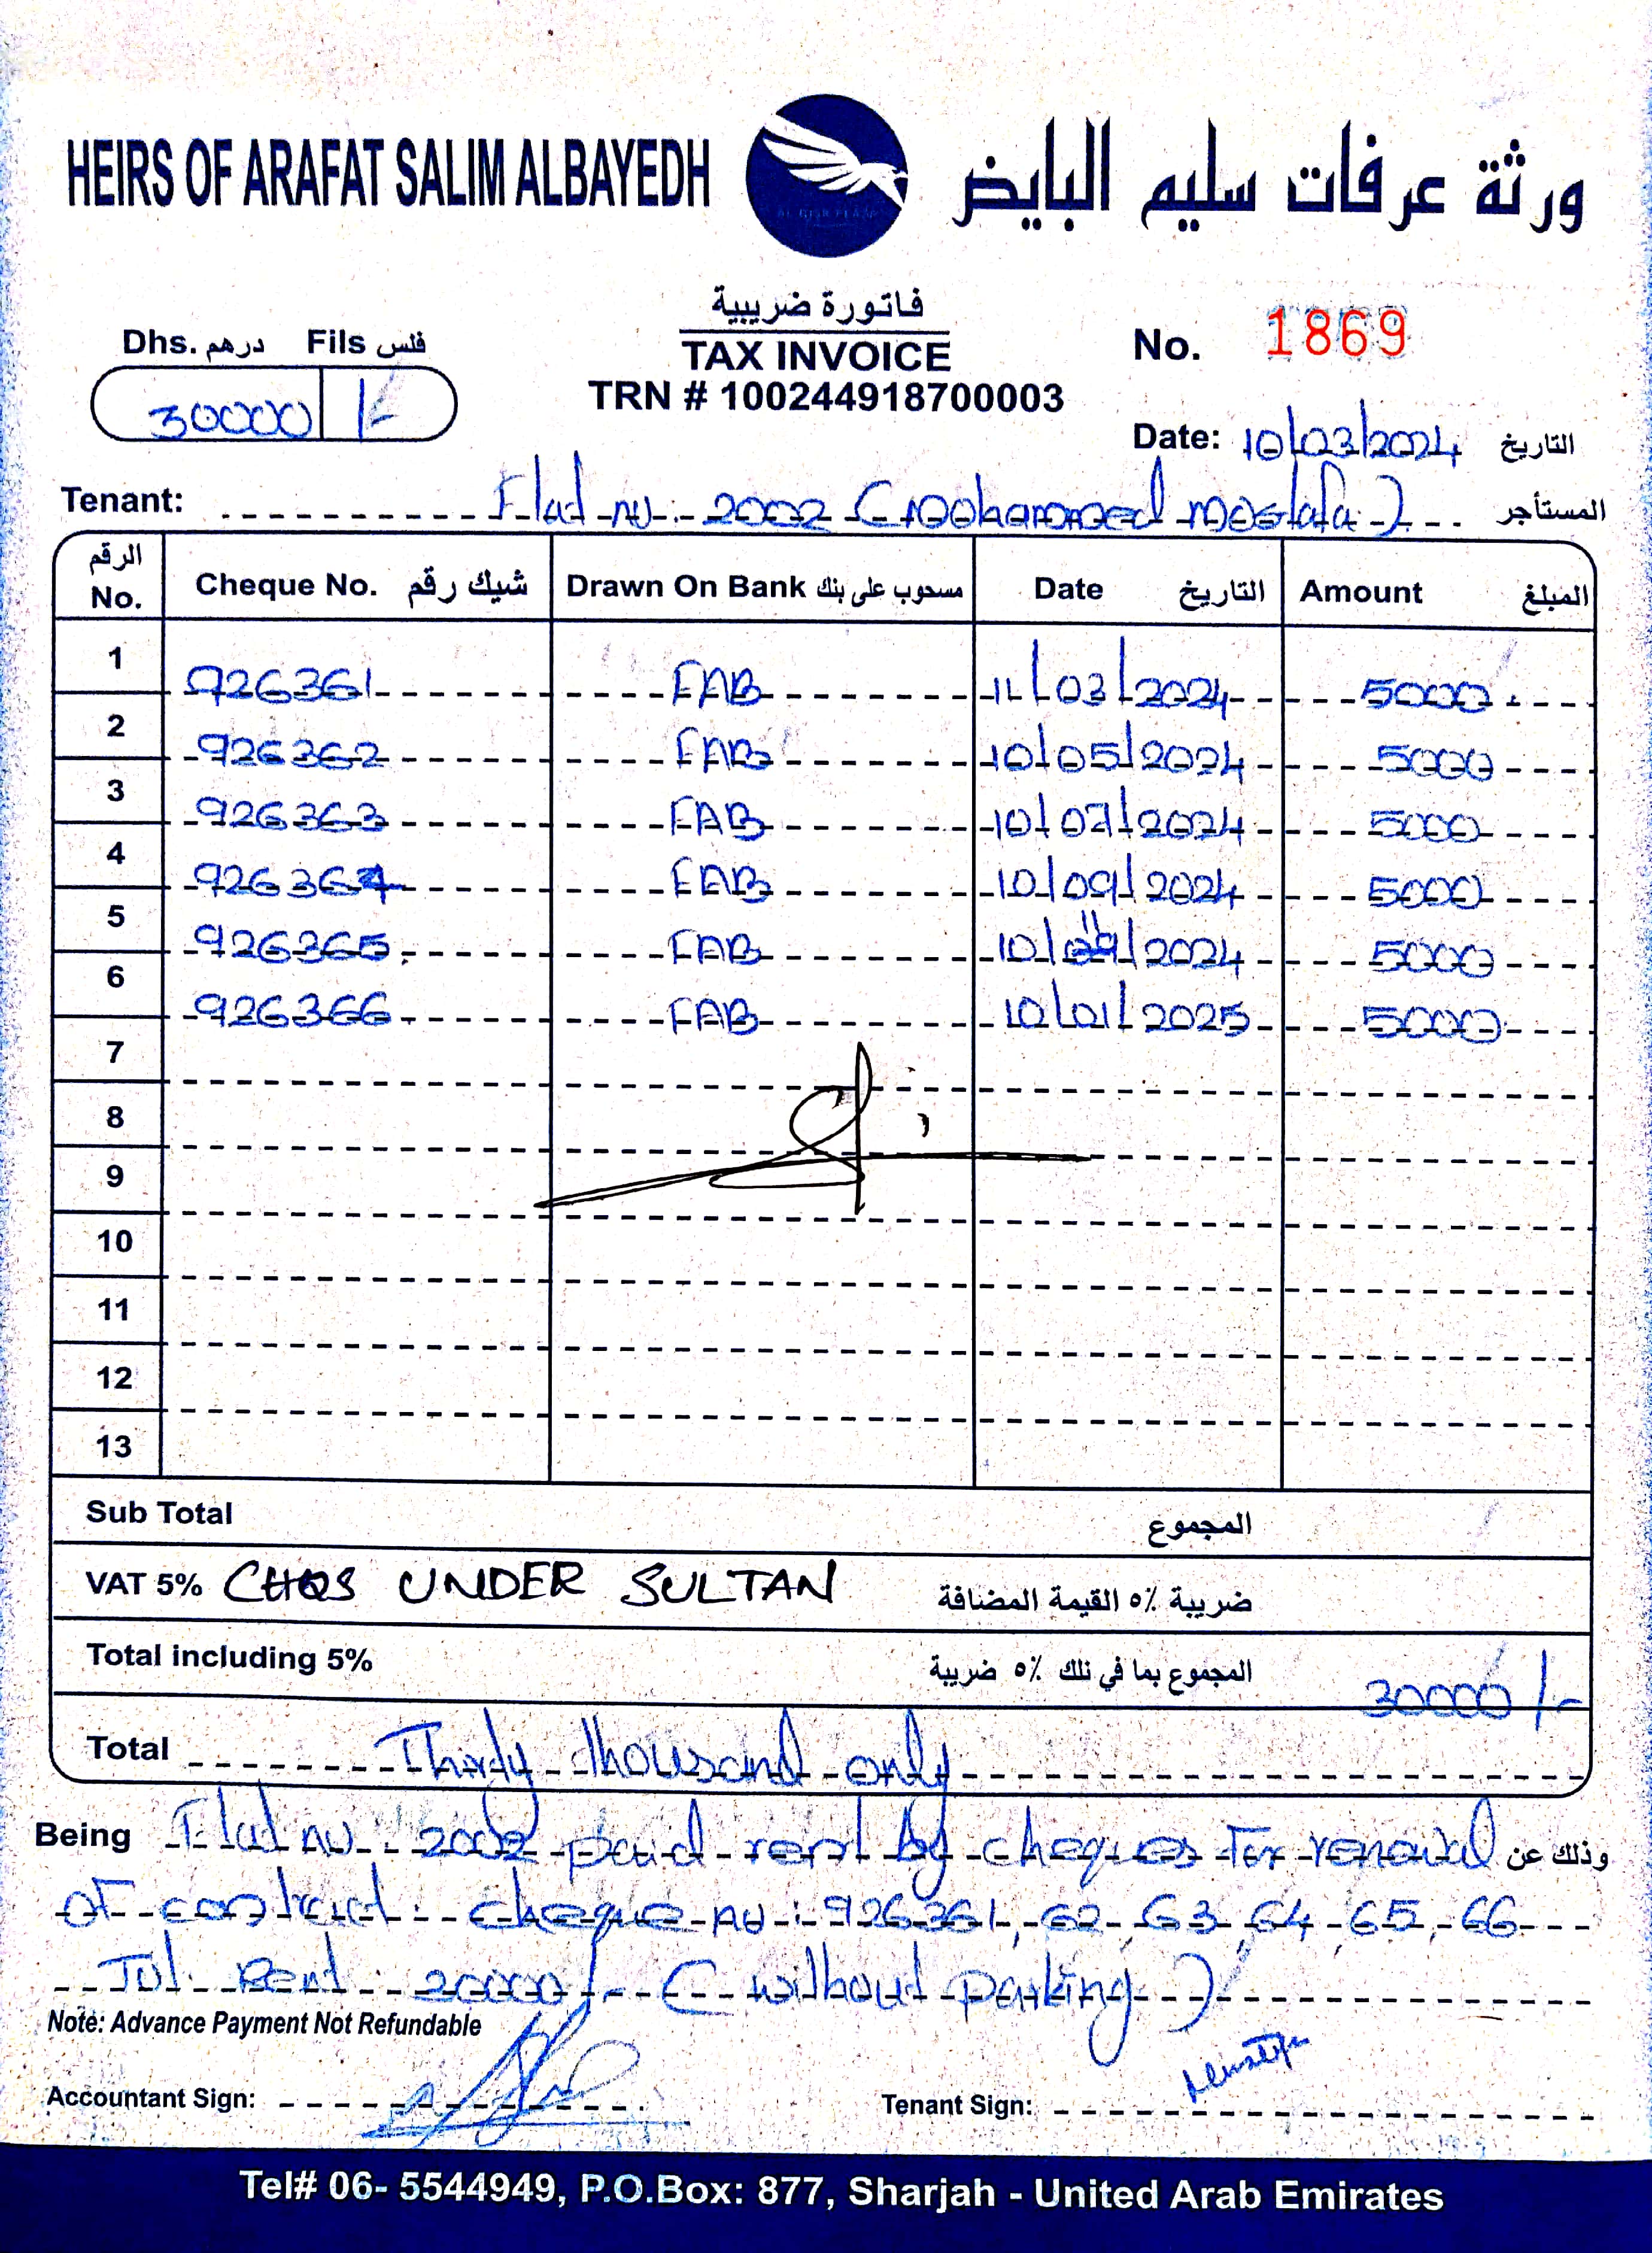 HEIRS OF ARAFAT SALIM ALBAYEDH ورثة عرفات سليم البايض
فاتورة ضريبية
TAX INVOICE
TRN # 100244918700003
Dhs. درهم Fils فلس
30000 /-
No. 1869
Date: 10/03/2024 التاريخ
Tenant: Flat no: 2002 (Mohammed Mostafa) المستأجر
الرقم No. Cheque No. شيك رقم Drawn On Bank مسحوب على بنك Date التاريخ Amount المبلغ
1 926361 FAB 11/03/2024 5000
2 926362 FAB 10/05/2024 5000
3 926363 FAB 10/07/2024 5000
4 926364 FAB 10/09/2024 5000
5 926365 FAB 10/11/2024 5000
6 926366 FAB 10/01/2025 5000
7
8
9
10
11
12
13
Sub Total المجموع
VAT 5% CHQS UNDER SULTAN ضريبة ٥٪ القيمة المضافة
Total including 5% المجموع بما في تلك ٥٪ ضريبة 30000/-
Total Thirty thousand only
Being Flat no: 2002 paid rent by cheques for renewal وذلك عن
of contract. cheque no: 926361, 62, 63, 64, 65, 66
Tot. Rent: 30000/- (without parking)
Note: Advance Payment Not Refundable
Accountant Sign: Tenant Sign: Mustafa
Tel# 06- 5544949, P.O.Box: 877, Sharjah - United Arab Emirates